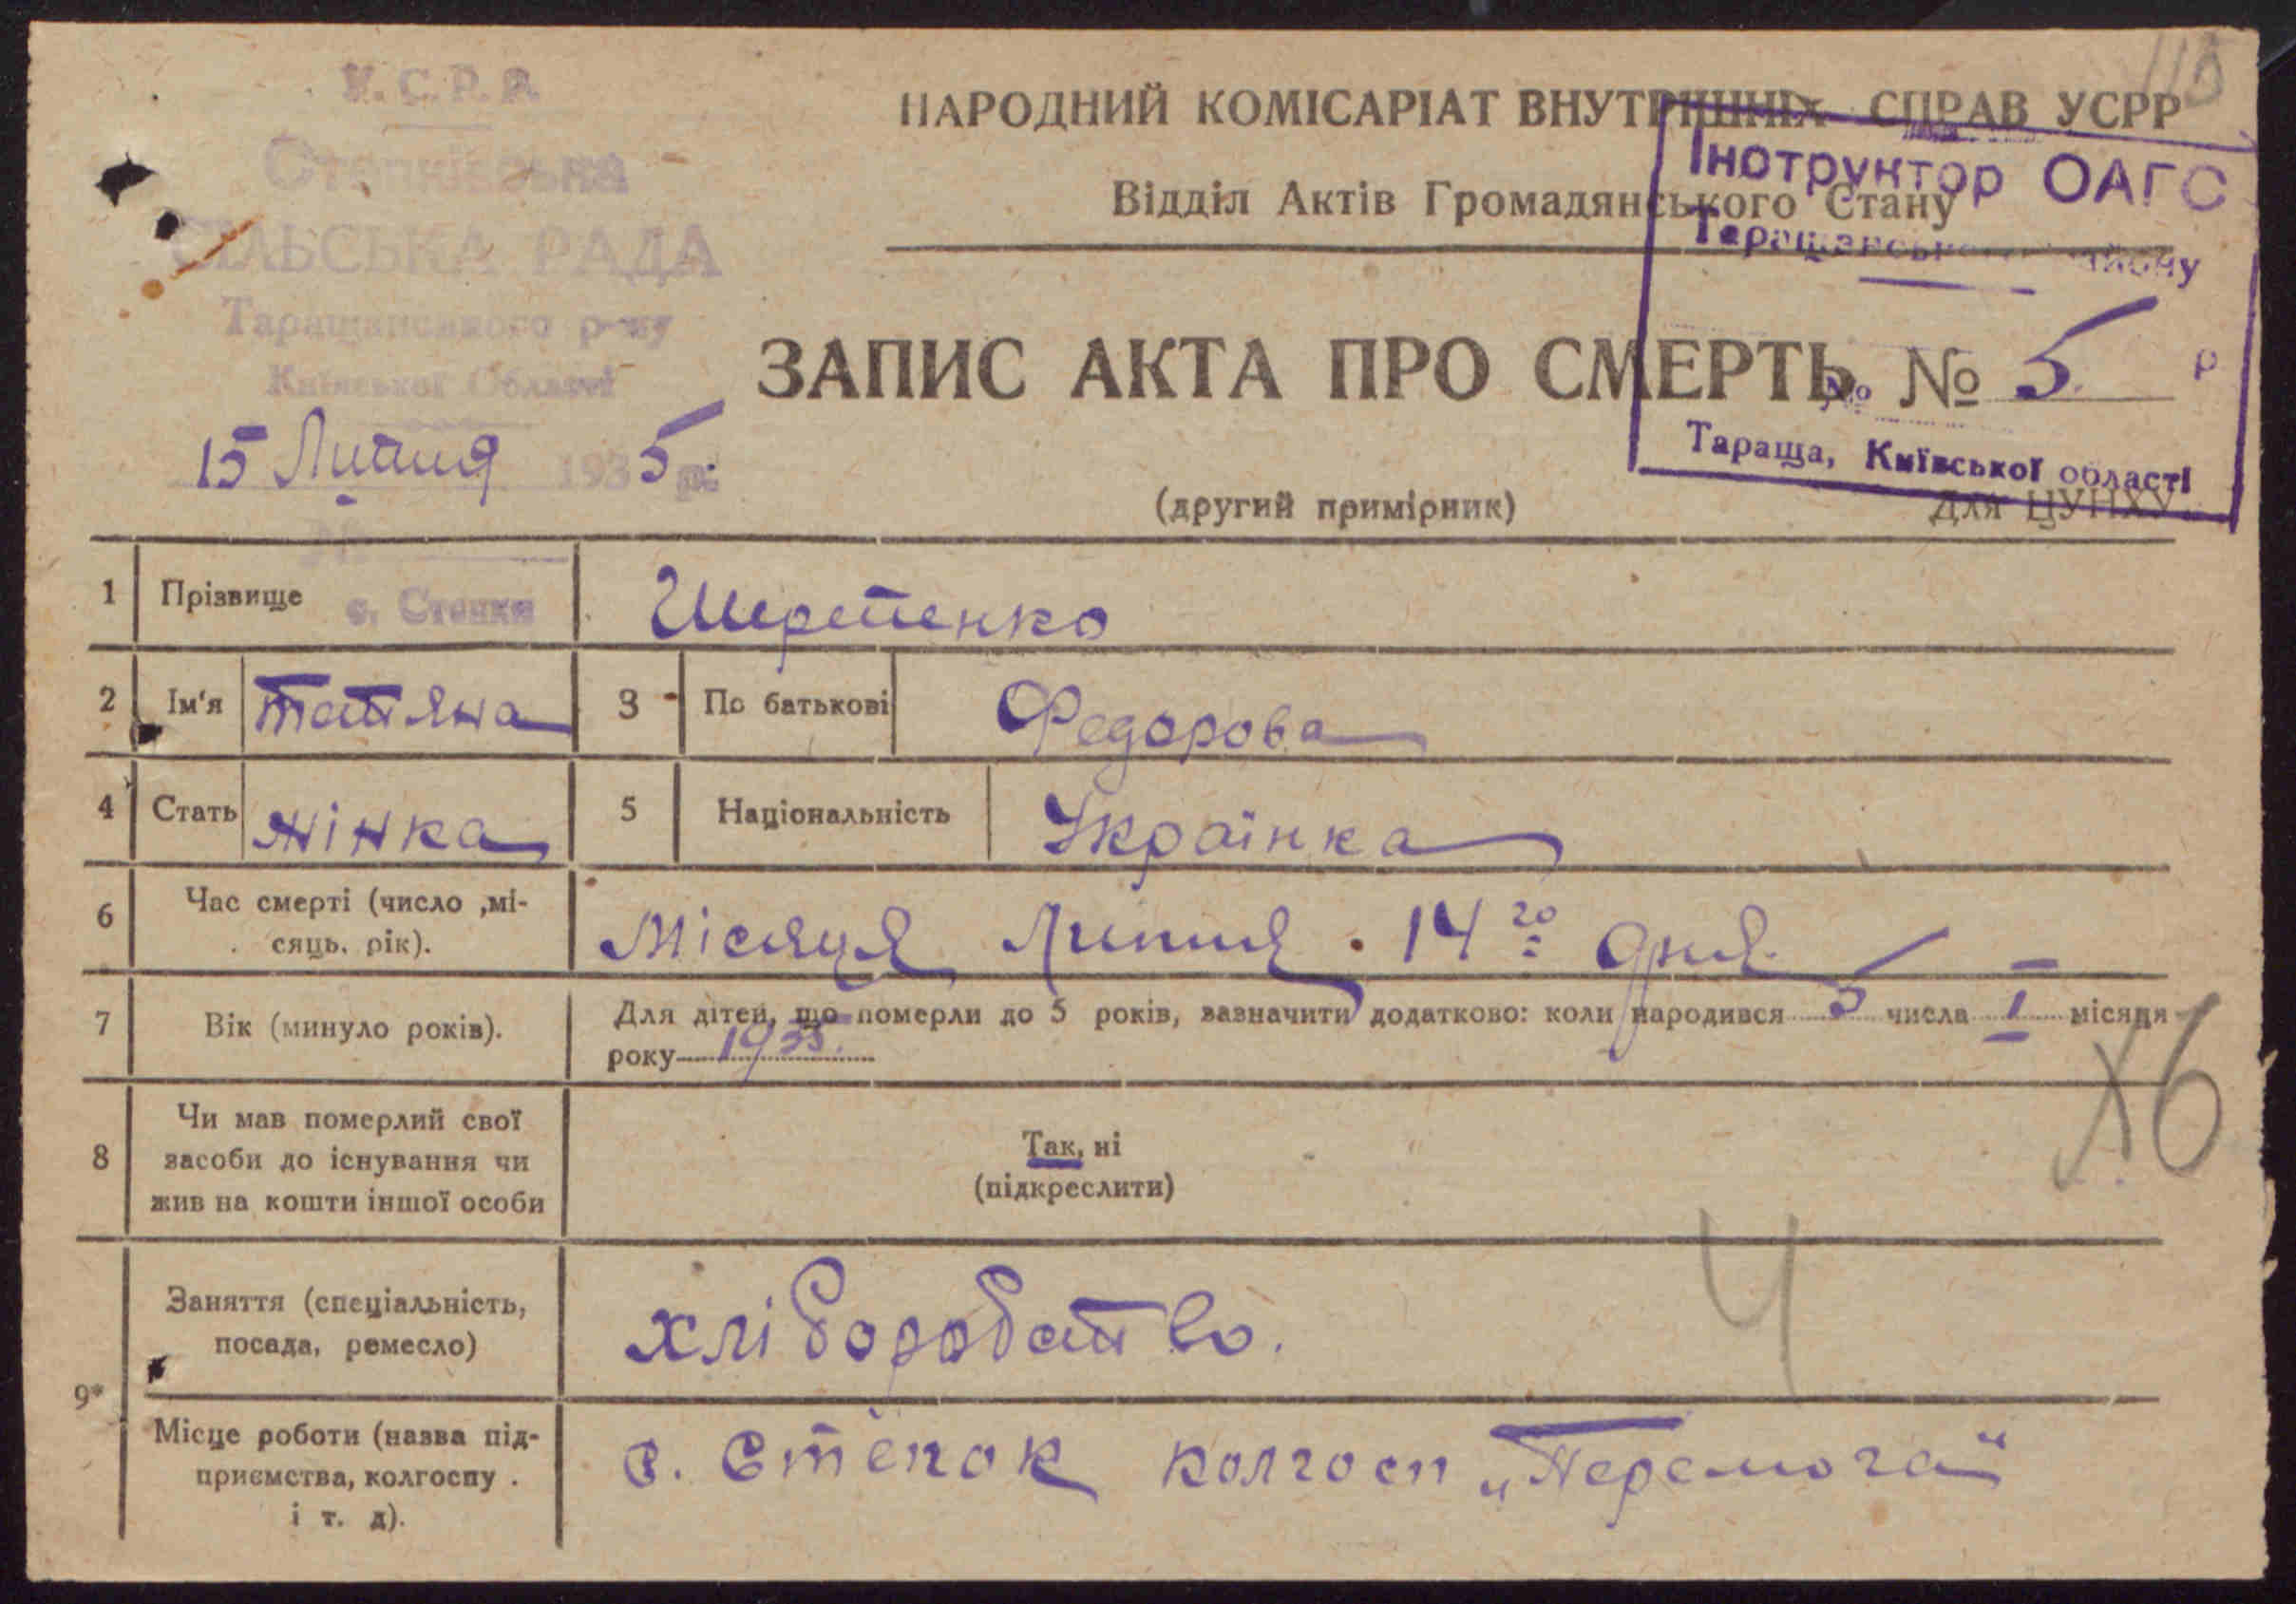 115
У.С.Р.Р.
НАРОДНИЙ КОМІСАРІАТ ВНУТРІШНІХ СПРАВ УСРР
Степківська
Інструктор ОАГС
Відділ Актів Громадянського Стану
СІЛЬСЬКА РАДА
Таращанського району
Таращанського р-ну
Київської Області
ЗАПИС АКТА ПРО СМЕРТЬ № 5
№ р
15 Липня 1935 р.
Тараща, Київської області
(другий примірник)
Для ЦУНХУ
№
1 Прізвище Шерепенко
с. Степки
2 Ім'я Татяна 3 По батькові Федорова
4 Стать жінка 5 Національність Українка
6 Час смерті (число ,мі-
сяць, рік). Місяця Липня . 14го дня.
7 Вік (минуло років). Для дітей, що померли до 5 років, зазначити додатково: коли народився 5 числа I місяця
року 1935.
Х6
8 Чи мав померлий свої
засоби до існування чи
жив на кошти іншої особи
Так, ні
(підкреслити)
Ч
9* Заняття (спеціальність,
посада, ремесло) хліборобство.
Місце роботи (назва під-
приємства, колгоспу .
і т. д). с. Степок колгосп „Перемога"